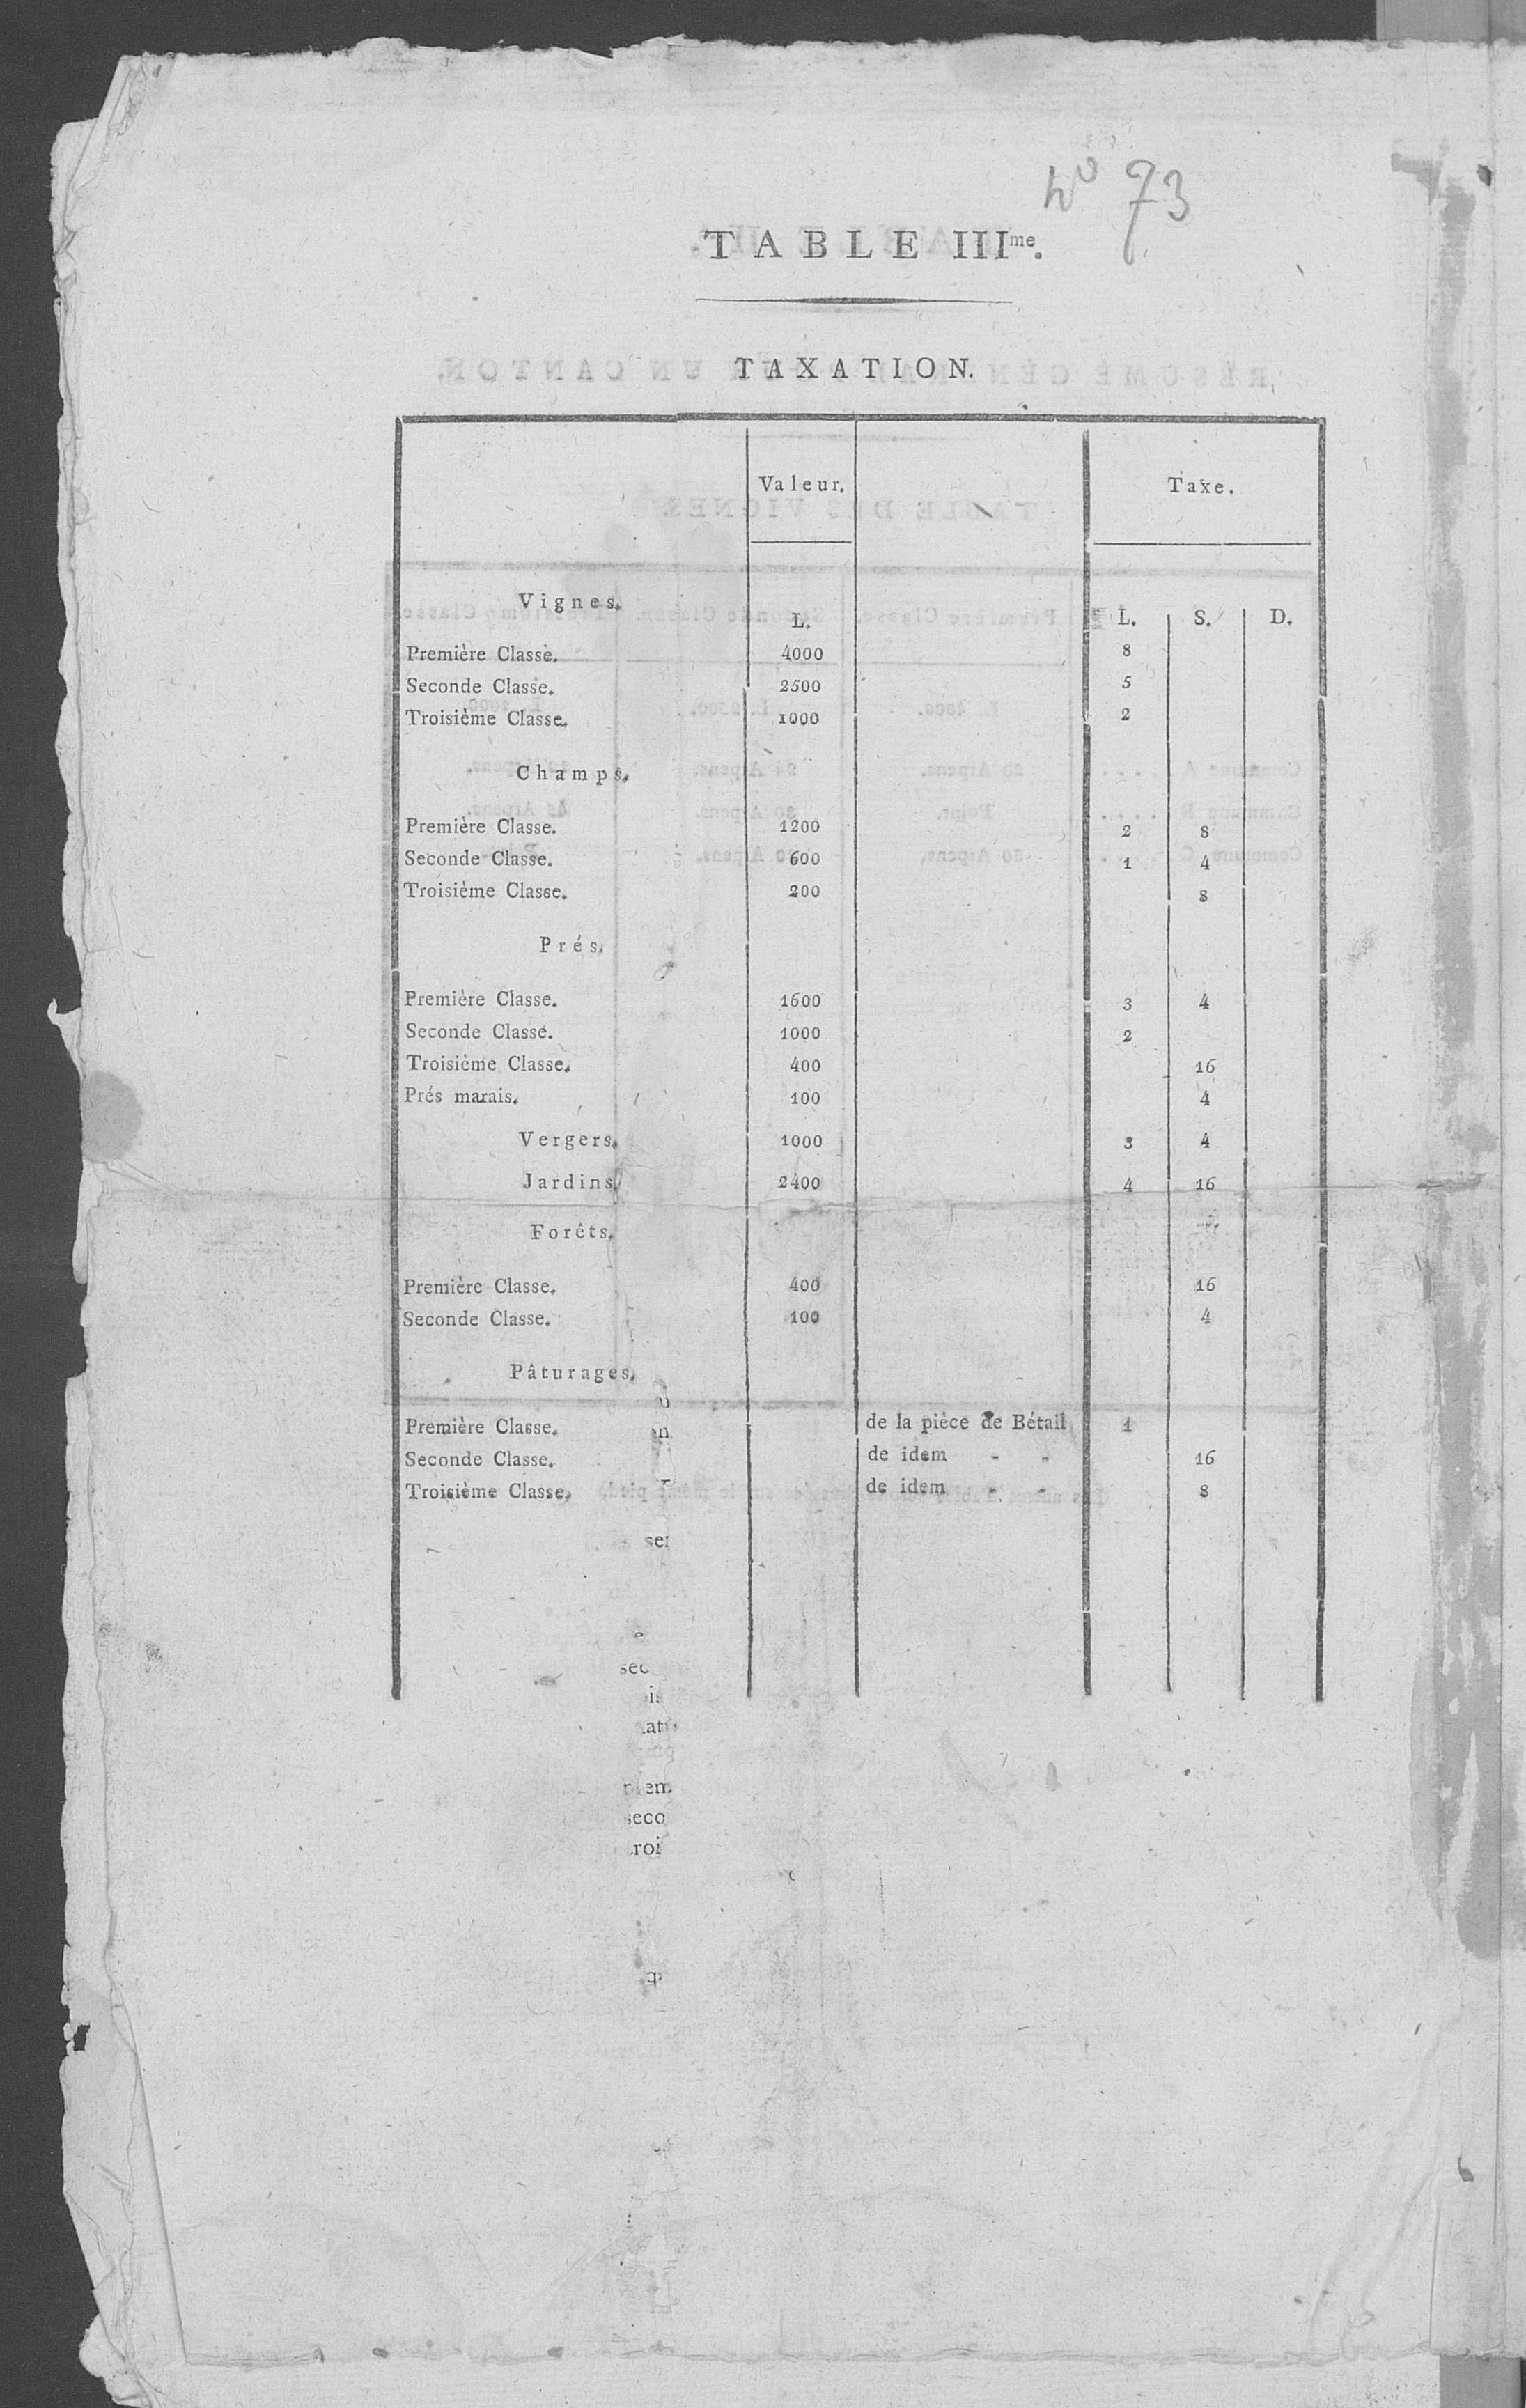 nº 73
TABLE IIIme.
TAXATION.
Valeur. Taxe.
Vignes.
L. L. S. D.
Première Classe. 4000 8
Seconde Classe. 2500 5
Troisième Classe. 1000 2
Champs.
Première Classe. 1200 2 8
Seconde Classe. 600 1 4
Troisième Classe. 200 8
Prés.
Première Classe. 1600 3 4
Seconde Classe. 1000 2
Troisième Classe. 400 16
Prés marais. 100 4
Vergers. 1000 3 4
Jardins. 2400 4 16
Forêts.
Première Classe. 400 16
Seconde Classe. 100 4
Pâturages.
Première Classe. de la pièce de Bétail 1
Seconde Classe. de idem - - 16
Troisième Classe. de idem - - 8